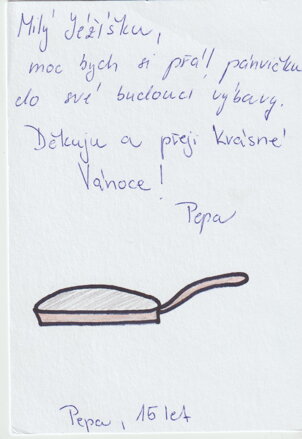 Milý Ježíšku,
moc bych si přál pánvičku
do své budoucí výbavy.
Děkuju a přeji krásné
Vánoce!
Pepa
Pepa, 15 let